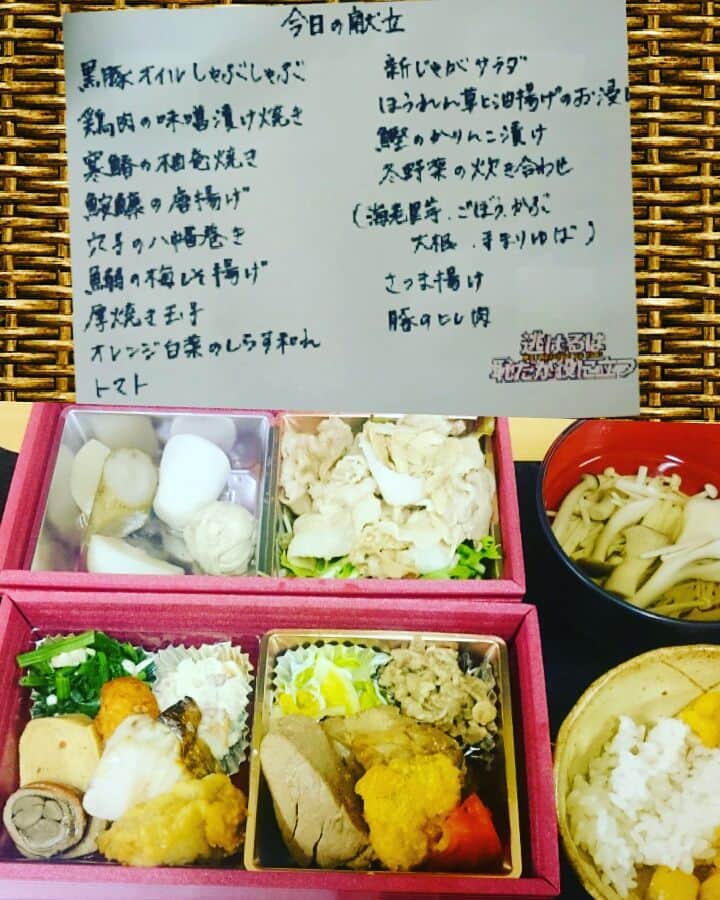 今日の献立
黒豚オイルしゃぶしゃぶ
鶏肉の味噌漬け焼き
寒鰆の柚庵焼き
鮟鱇の唐揚げ
穴子の八幡巻き
鰯の梅しそ揚げ
厚焼き玉子
オレンジ白菜のしらす和え
トマト
新じゃがサラダ
ほうれん草と油揚げのお浸し
鰹のかりんこ漬け
冬野菜の炊き合わせ
(海老芋、ごぼう、かぶ
大根、手まりゆば)
さつま揚げ
豚のヒレ肉
逃げるは
恥だが役に立つ